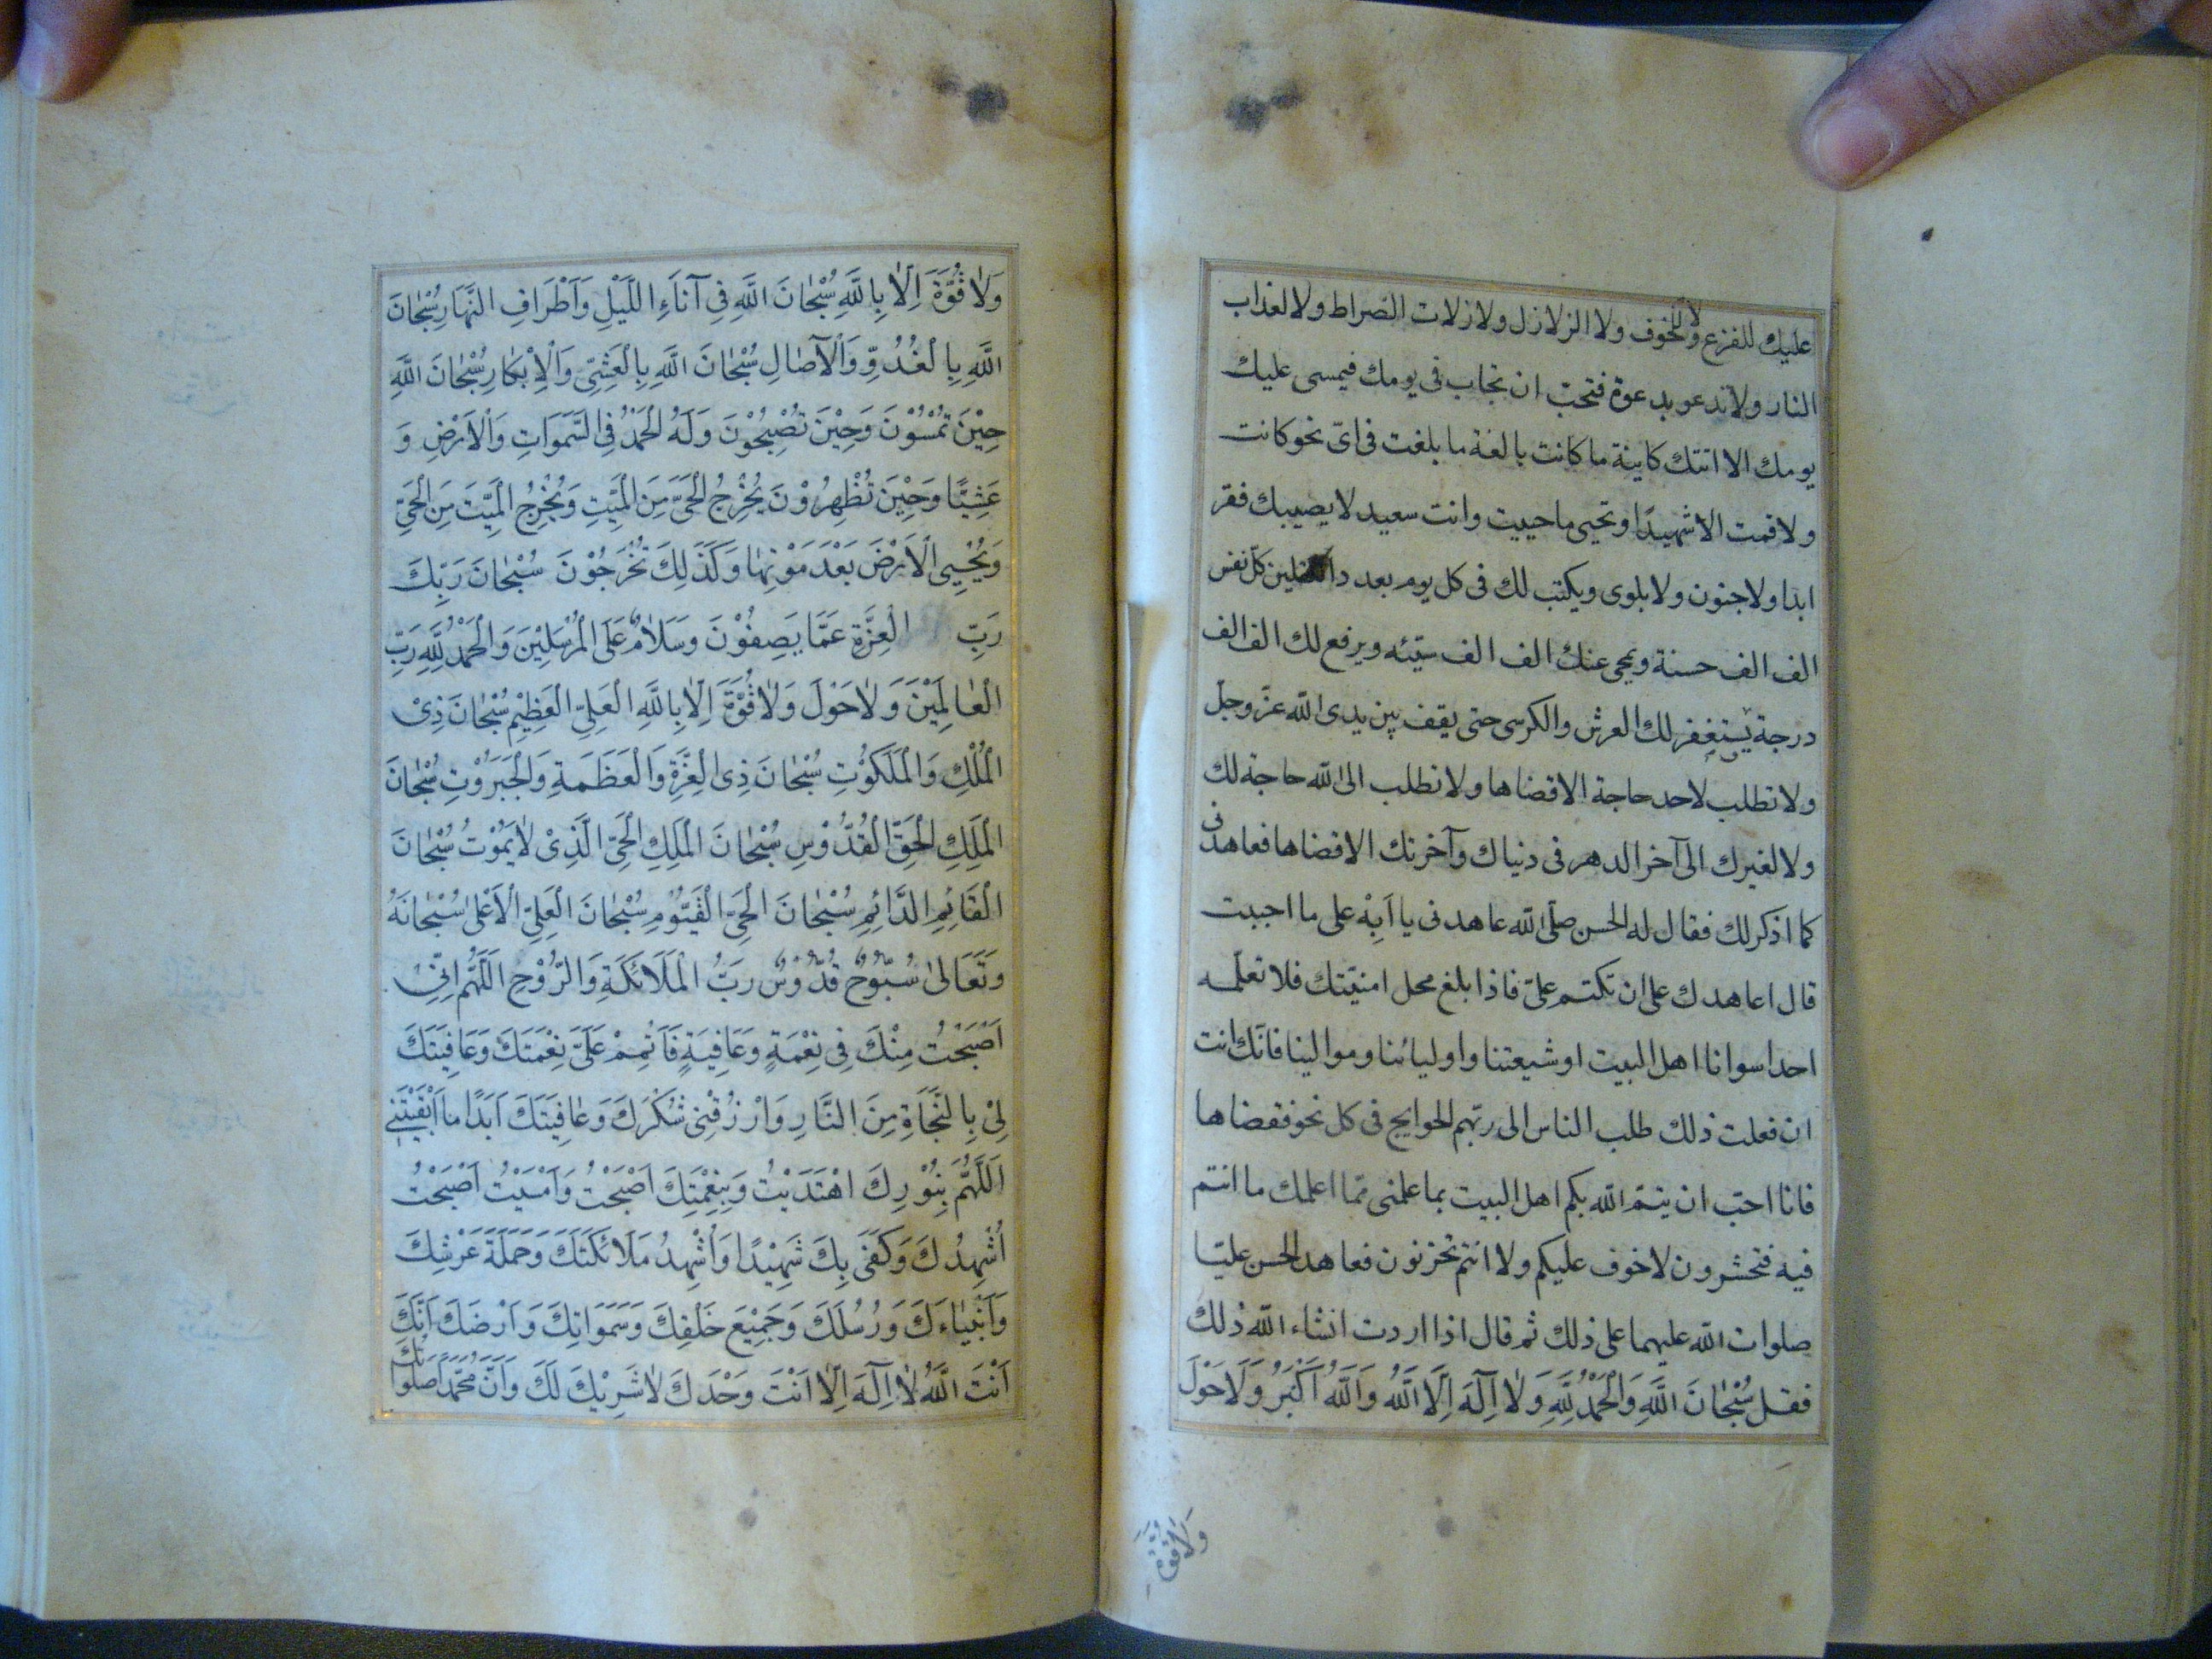 عليك للفزع ولا للخوف ولا الزلازل ولا زلات الصراط ولا لعذاب
النار ولا تدعو بدعوة فتحب ان تجاب فى يومك فيمسى عليك
يومك الا اتتك كاينة ما كانت بالغة ما بلغت فى اىّ نحو كانت
ولا قمت الا شهيدًا وتحيى ما حييت وانت سعيد لا يصيبك فقر
ابدا ولا جنون ولا بلوى ويكتب لك فى كل يوم بعدد كلّ نفس
الف الف حسنة ويمحى عنك الف الف سيّئه ويرفع لك الف الف
درجة يستغفر لك العرش والكرسى حتى يقف بين يدى الله عزّ وجلّ
ولا تطلب لاحد حاجة الا قضاها ولا تطلب الى الله حاجة لك
ولا لغيرك الى آخر الدهر فى دنياك وآخرتك الا قضاها فعاهدنى
كما اذكر لك فقال له الحسن صلّى الله عاهدنى يا اَبِهْ على ما احببت
قال اعاهدك على ان تكتم علىّ فاذا بلغ محل امنيّتك فلا تعلّمه
احدا سوانا اهل البيت او شيعتنا واوليائنا وموالينا فانّك انت
ان فعلت ذلك طلب الناس الى ربّهم الحوايج فى كل نحو فقضاها
فانا احبّ ان يتمّ الله بكم اهل البيت بما علمنى ممّا اعلمك ما انتم
فيه فتحشرون لا خوف عليكم ولا انتم تحزنون فعاهد الحسن عليّا
صلوات الله عليهما على ذلك ثم قال اذا اردت انشاء الله ذلك
فقل سُبْحٰانَ اللَّهِ وَالْحَمْدُ لِلَّهِ وَلٰا اِلٰهَ اِلَّا اللَّهُ وَاللَّهُ اَكْبَرُ وَلَا حَوْلَ
وَلَا قُوَّةَ
وَلٰا قُوَّةَ اِلّٰا بِاللَّهِ سُبْحٰانَ اللَّهِ فِى آنَاءِ اللَّيْلِ وَاَطْرَافِ النَّهَارِ سُبْحٰانَ
اللَّهِ بِالْغُدُوِّ وَالْآصٰالِ سُبْحٰانَ اللَّهِ بِالْعَشِىِّ وَالْاِبْكٰارِ سُبْحٰانَ اللَّهِ
حِيْنَ تُمْسُوْنَ وَحِيْنَ تُصْبِحُوْنَ وَلَهُ الْحَمْدُ فِى السَّمَوَاتِ وَالْاَرْضِ وَ
عَشِيًّا وَحِيْنَ تُظْهِرُوْنَ يُخْرِجُ الْحَىَّ مِنَ الْمَيِّتِ وَيُخْرِجُ الْمَيِّتَ مِنَ الْحَىِّ
وَيُحْيِى الْاَرْضَ بَعْدَ مَوْتِهٰا وَكَذَلِكَ تُخْرَجُوْنَ سُبْحٰانَ رَبِّكَ
رَبِّ الْعِزَّةِ عَمَّا يَصِفُوْنَ وَسَلاٰمٌ عَلَى الْمُرْسَلِيْنَ وَالْحَمْدُ لِلَّهِ رَبِّ
الْعٰالَمِيْنَ وَلٰا حَوْلَ وَلٰا قُوَّةَ اِلّٰا بِاللَّهِ الْعَلِىِّ الْعَظِيْمِ سُبْحٰانَ ذِىْ
الْمُلْكِ وَالْمَلَكُوْتِ سُبْحٰانَ ذِى الْعِزَّةِ وَالْعَظَمَةِ وَالْجَبَرُوْتِ سُبْحٰانَ
الْمَلِكِ الْحَقِّ الْقُدُّوْسِ سُبْحٰانَ الْمَلِكِ الْحَىِّ الَّذِىْ لٰا يَمُوْتُ سُبْحٰانَ
الْقَائِمِ الدَّائِمِ سُبْحٰانَ الْحَىِّ الْقَيُّوْمِ سُبْحٰانَ الْعَلِىِّ الْاَعْلىٰ سُبْحٰانَهُ
وَتَعَالىٰ سُبُّوْحٌ قُدُّوْسٌ رَبُّ الْمَلَائِكَةِ وَالرُّوْحِ اَللَّهُمَّ اِنِّىْ
اَصْبَحْتُ مِنْكَ فِى نِعْمَةٍ وَعَافِيَةٍ فَاَتْمِمْ عَلَىَّ نِعْمَتَكَ وَعَافِيَتَكَ
لِىْ بِالنَّجَاةِ مِنَ النَّارِ وَارْزُقْنِى شُكْرَكَ وَعٰافِيَتَكَ اَبَدًا مٰا اَبْقَيْتَنِى
اَللَّهُمَّ بِنُوْرِكَ اهْتَدَيْتُ وَبِنِعْمَتِكَ اَصْبَحْتُ وَاَمْسَيْتُ اَصْبَحْتُ
اُشْهِدُكَ وَكَفَى بِكَ شَهِيْدًا وَاُشْهِدُ مَلَائِكَتَكَ وَحَمَلَةَ عَرْشِكَ
وَاَنْبِيٰاءَكَ وَرُسُلَكَ وَجَمِيْعَ خَلْقِكَ وَسَمَوَاتِكَ وَاَرْضَكَ اَنَّكَ
اَنْتَ اللَّهُ لٰا اِلٰهَ اِلّٰا اَنْتَ وَحْدَكَ لٰا شَرِيْكَ لَكَ وَاَنَّ مُحَمَّدًا صَلَوَاتُكَ